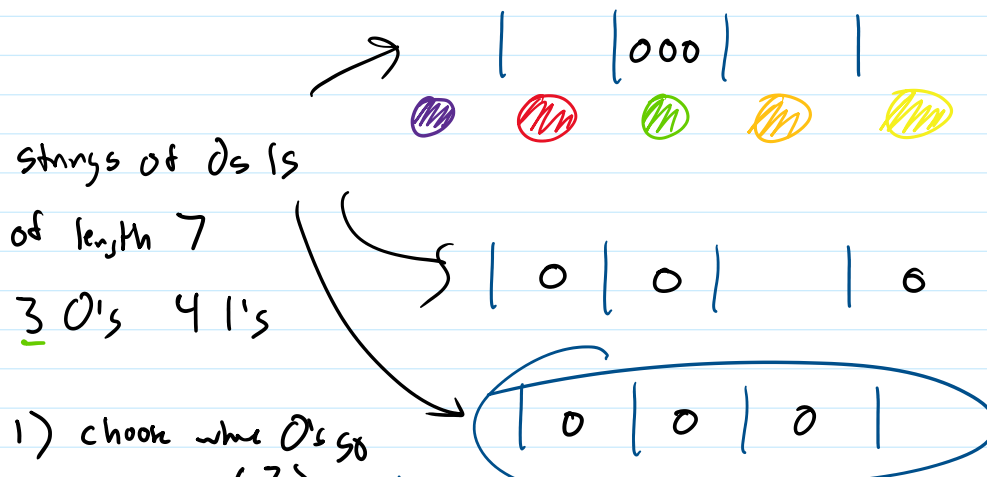 | |000| |
strings of 0s 1s
of length 7
| 0 | 0 | | 0
3 0's 4 1's
| 0 | 0 | 0 |
1) choose where 0's go